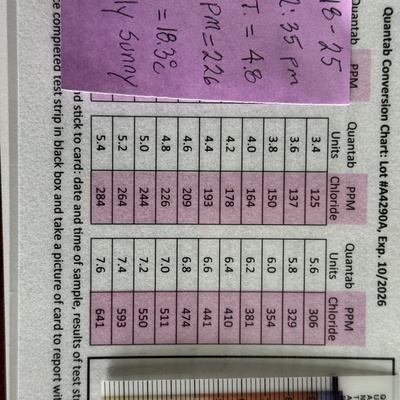 Quantab Conversion Chart: Lot #A4290A, Exp. 10/2026
18-25
2:35 pm
T. = 4.8
PM = 226
= 18.3°C
ly sunny
Quantab PPM
Quantab Units PPM Chloride
3.4 125
3.6 137
3.8 150
4.0 164
4.2 178
4.4 193
4.6 209
4.8 226
5.0 244
5.2 264
5.4 284
Quantab Units PPM Chloride
5.6 306
5.8 329
6.0 354
6.2 381
6.4 410
6.6 441
6.8 474
7.0 511
7.2 550
7.4 593
7.6 641
nd stick to card: date and time of sample, results of test st
ce completed test strip in black box and take a picture of card to report wit